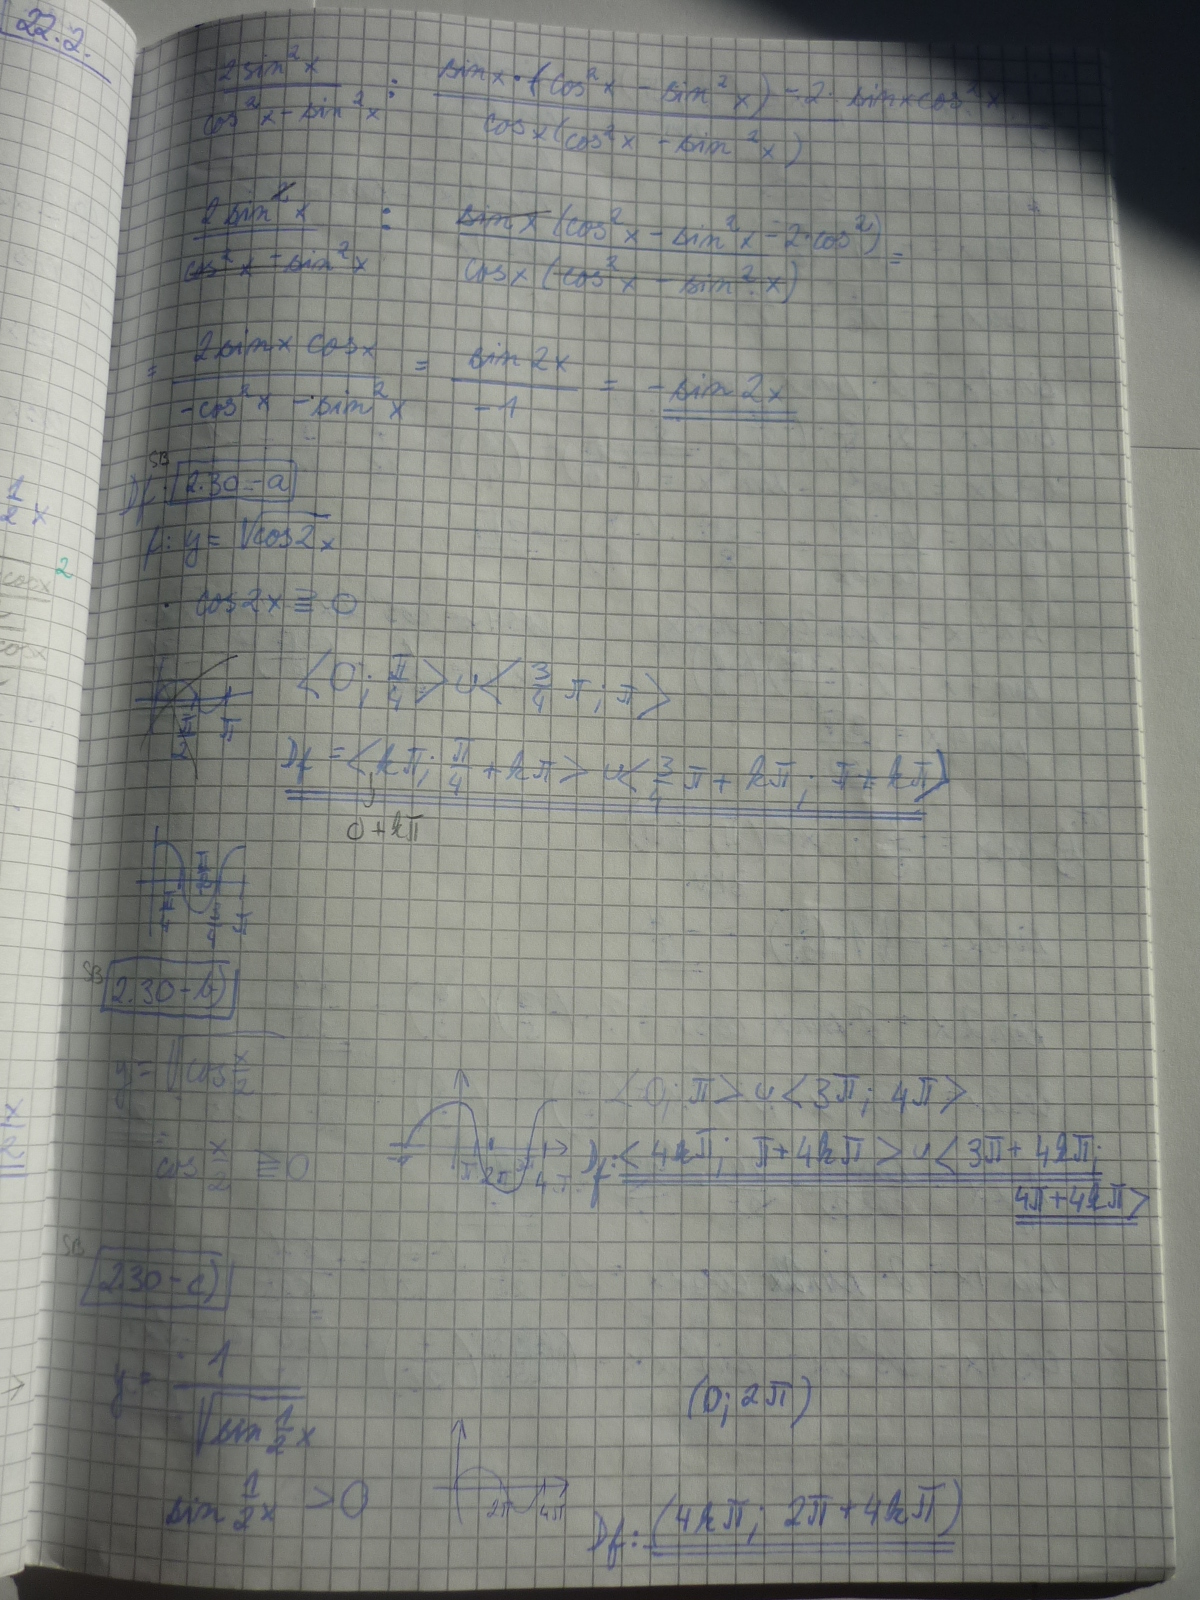 22.2.
2sin²x / cos²x - sin²x : sinx·(cos²x - sin²x) - 2·sinxcos²x / cosx(cos²x - sin²x)
2sin²x / cos²x - sin²x : sinx(cos²x - sin²x - 2·cos²) / cosx(cos²x - sin²x) =
= 2sinx cosx / -cos²x - sin²x = sin2x / -1 = -sin2x
SB
Df: 2.30 - a)
f: y = √cos2x
cos2x ≧ 0
<0; π/4> ∪ <3/4 π; π>
π/2 π
Df = <kπ; π/4 + kπ> ∪ <3/4 π + kπ; π + kπ>
0 + kπ
π/4 π/2 3/4π π
SB 2.30 - b)
y = √cos x/2
<0; π> ∪ <3π; 4π>
cos x/2 ≧ 0
π 2π 4π
Df: <4kπ; π + 4kπ> ∪ <3π + 4kπ;
4π + 4kπ>
SB
2.30 - c)
y = 1 / √sin 1/2 x
(0; 2π)
sin 1/2 x > 0
2π 4π
Df: (4kπ; 2π + 4kπ)